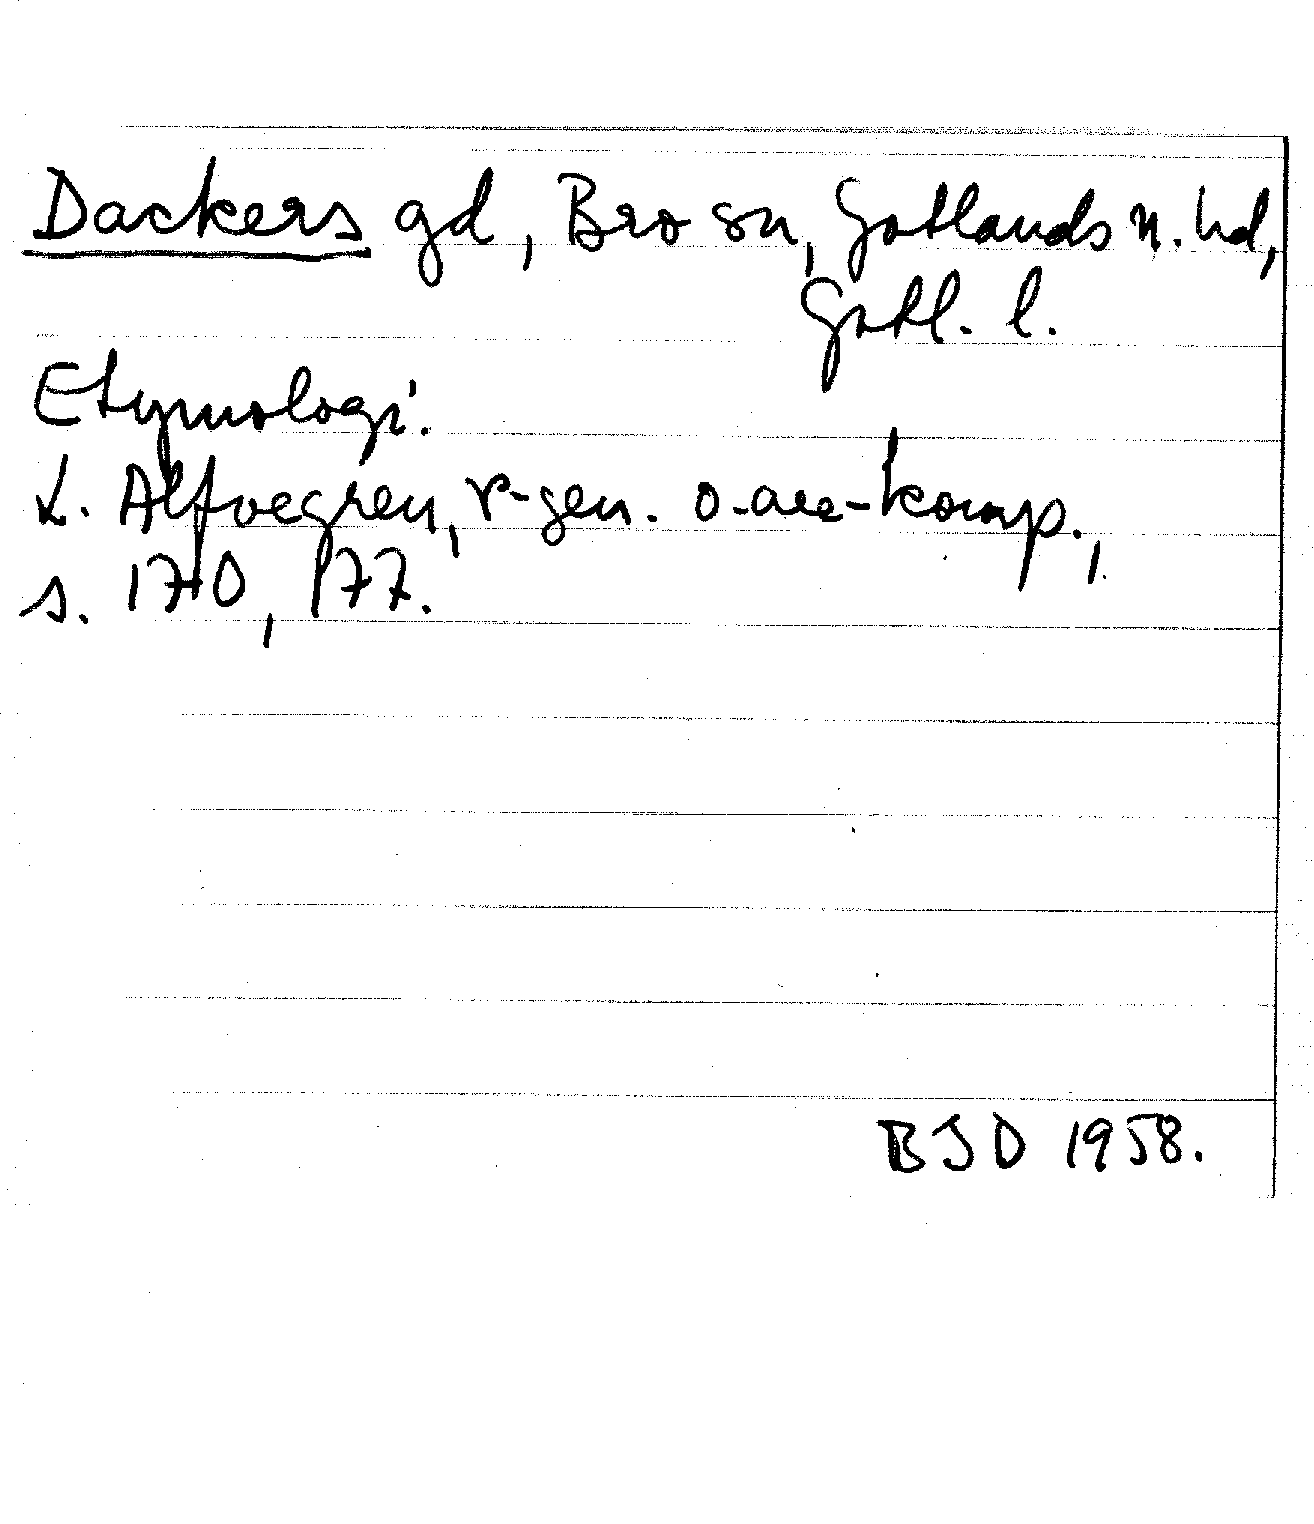 Dackers gd, Bro sn, Gotlands n. hd,
Gotl. l.
Etymologi.
L. Alfvegren, r-gen. o. are-komp.,
s. 170, 177.
BJD 1958.